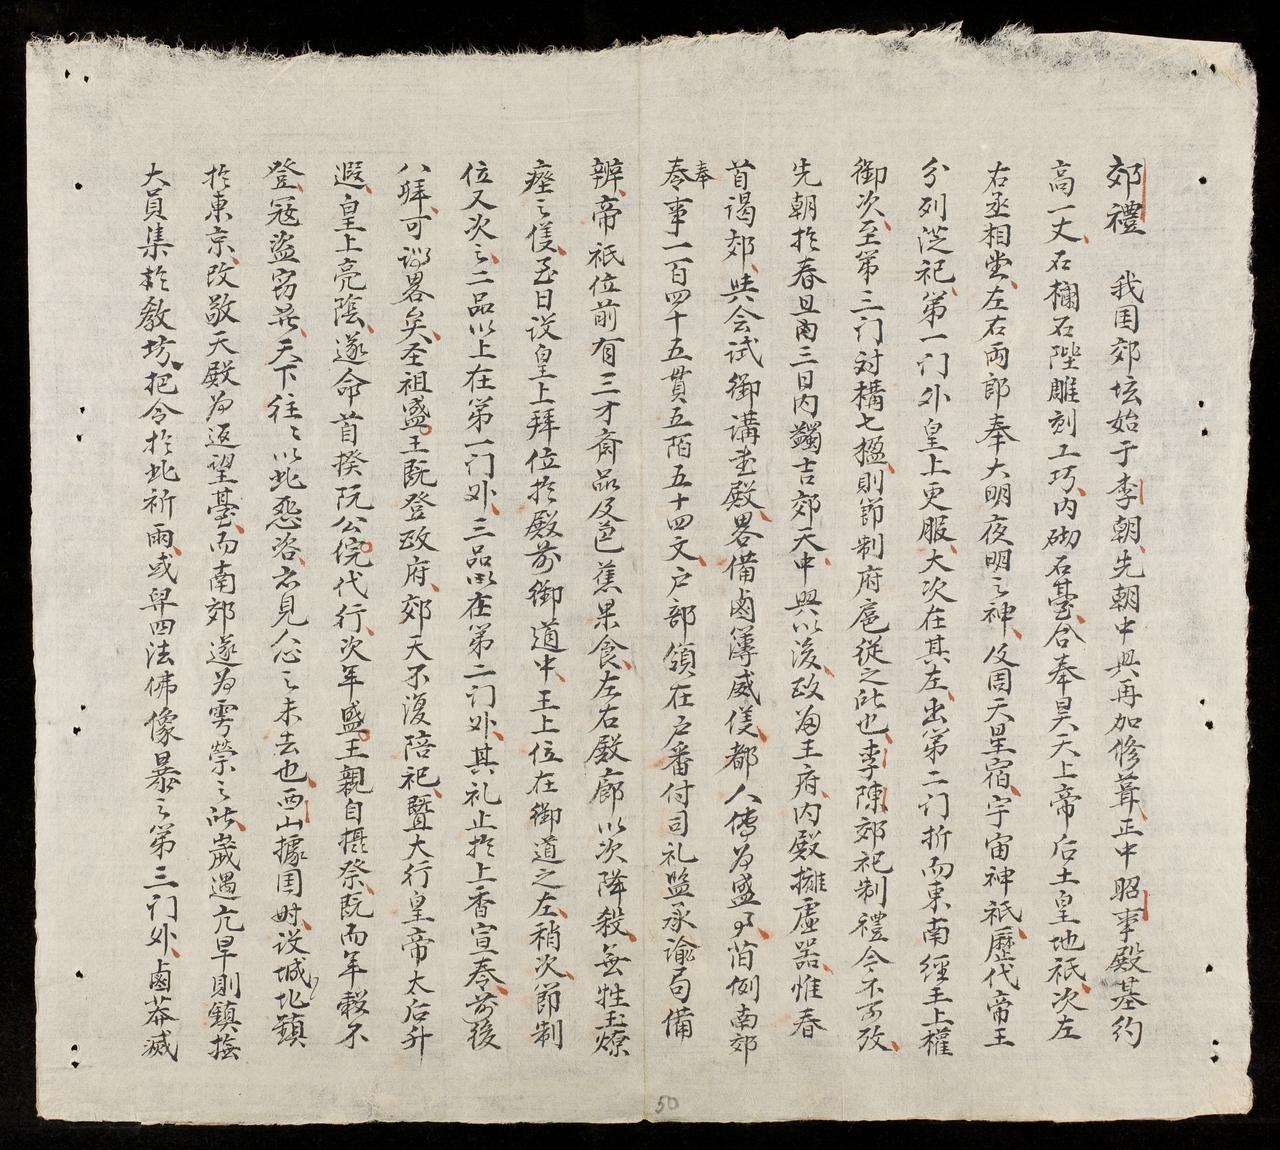 郊禮　我囯郊坛始于李朝先朝中興再加修葺正中昭事殿基約
高一丈石欄石陛雕刻工巧内砌石䑓合奉昊天上帝后土皇地祇次左
右丞相堂左右両郎奉大明夜明之神及周天星宿宇宙神祇歷代帝王
分列従祀第一门外皇上更服大次在其左出第二门折而東南經王上權
御次至第三门对構七楹則節制府扈従之所也李陳郊祀制禮今不可攷
先朝於春旦内三日内蠲吉郊天中興以後政為王府内殿擁虚器惟春
首谒郊與会试御講堂殿畧備鹵簿威仪都人傳為盛事舊例南郊
奉
奏事一百四十五貫五陌五十四文户部領在户番付司礼监承谕局備
辨帝祇位前有三才斎品及芭蕉果食左右殿廊以次降殺無牲玉燎
瘞之仪至日设皇上拜位於殿前御道中王上位在御道之左稍次節制
位又次之二品以上在第一门外三品以下在第二门外其礼止於上香宣奏前後
八拜可謂畧矣圣祖盛王既登政府郊天不復陪祀暨大行皇帝太后升
遐皇上亮陰遂命首揆阮公俒代行次年盛王親自攝祭既而年穀不
登冦盗窃發天下往々以此怨咨亦見人心之未去也西山據囯时设城北鎮
於東京改敬天殿為返望䑓而南郊遂為雩禜之所歲遇亢旱則鎮撫
大員集於教坊把令於此祈雨或舁四法佛像暴之第三门外鹵莽滅
50